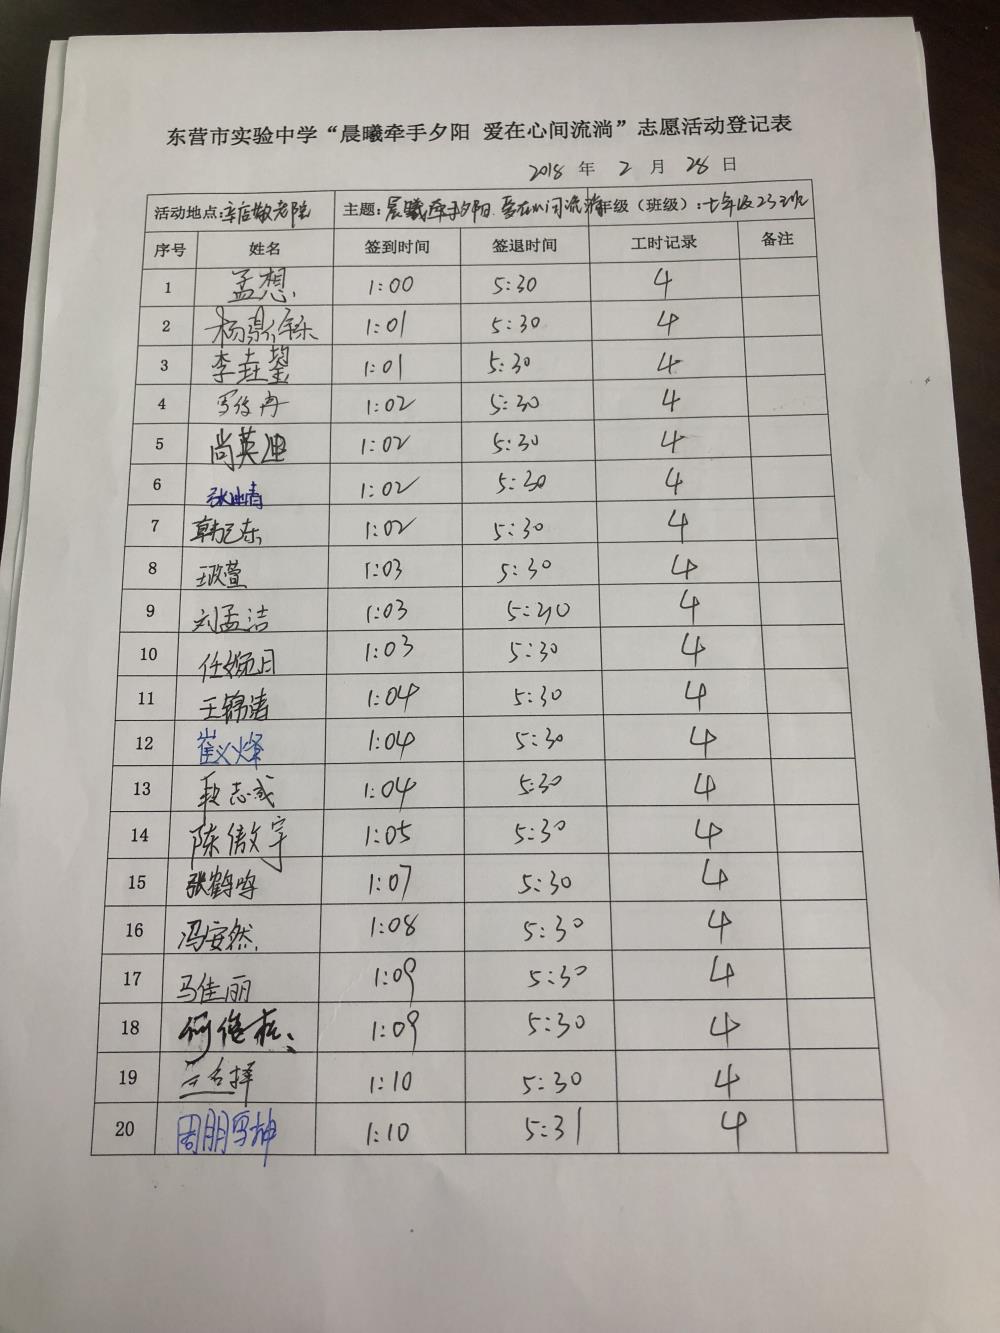 东营市实验中学“晨曦牵手夕阳 爱在心间流淌”志愿活动登记表
2018 年 2 月 28 日
活动地点:辛店敬老院 主题:晨曦牵手夕阳 爱在心间流淌 年级（班级）:七年级23班
序号 姓名 签到时间 签退时间 工时记录 备注
1 孟想 1:00 5:30 4
2 1:01 5:30 4
3 1:01 5:30 4
4 1:02 5:30 4
5 尚英迪 1:02 5:30 4
6 1:02 5:30 4
7 1:02 5:30 4
8 1:03 5:30 4
9 刘孟洁 1:03 5:30 4
10 1:03 5:30 4
11 王锦涛 1:04 5:30 4
12 1:04 5:30 4
13 段志成 1:04 5:30 4
14 陈傲宇 1:05 5:30 4
15 张鹤鸣 1:07 5:30 4
16 冯安然 1:08 5:30 4
17 马佳丽 1:09 5:30 4
18 1:09 5:30 4
19 1:10 5:30 4
20 1:10 5:31 4